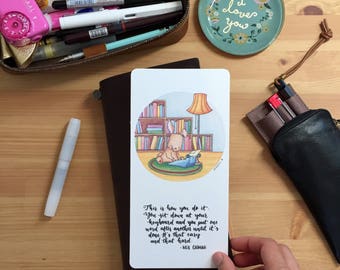 i love you
This is how you do it:
You sit down at your
keyboard and you put one
word after another until it's
done. It's that easy
and that hard.
- NEIL GAIMAN